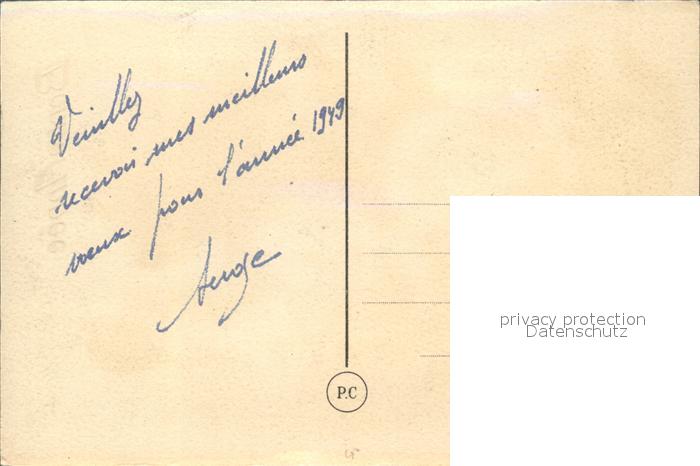 Veuillez
recevoir mes meilleurs
vœux pour l'année 1949
P.C
privacy protection
Datenschutz